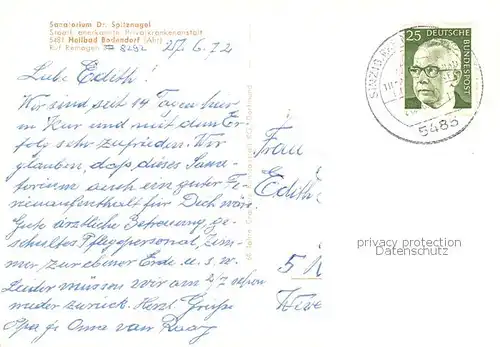 Sanatorium Dr. Spitznagel
Staatl. anerkannte Privatkrankenanstalt
5481 Heilbad Bodendorf (Ahr)
Ruf Remagen 8292
27.6.72
Liebe Edith!
Wir sind seit 14 Tagen hier
in Kur und mit dem Er-
folg sehr zufrieden. Wir
glauben, daß dieses Sana-
torium auch ein guter Fe-
rienaufenthalt für Dich wäre.
Gute ärztliche Betreuung, ge-
schultes Pflegepersonal, Zim-
mer zur ebener Erde u.s.w.
Leider müssen wir am 2/7 schon
wieder zurück. Herzl. Grüße
Opa & Oma van
25 DEUTSCHE
BUNDESPOST
SINZIG
5485
Frau
Edith
5
privacy protection
Datenschutz